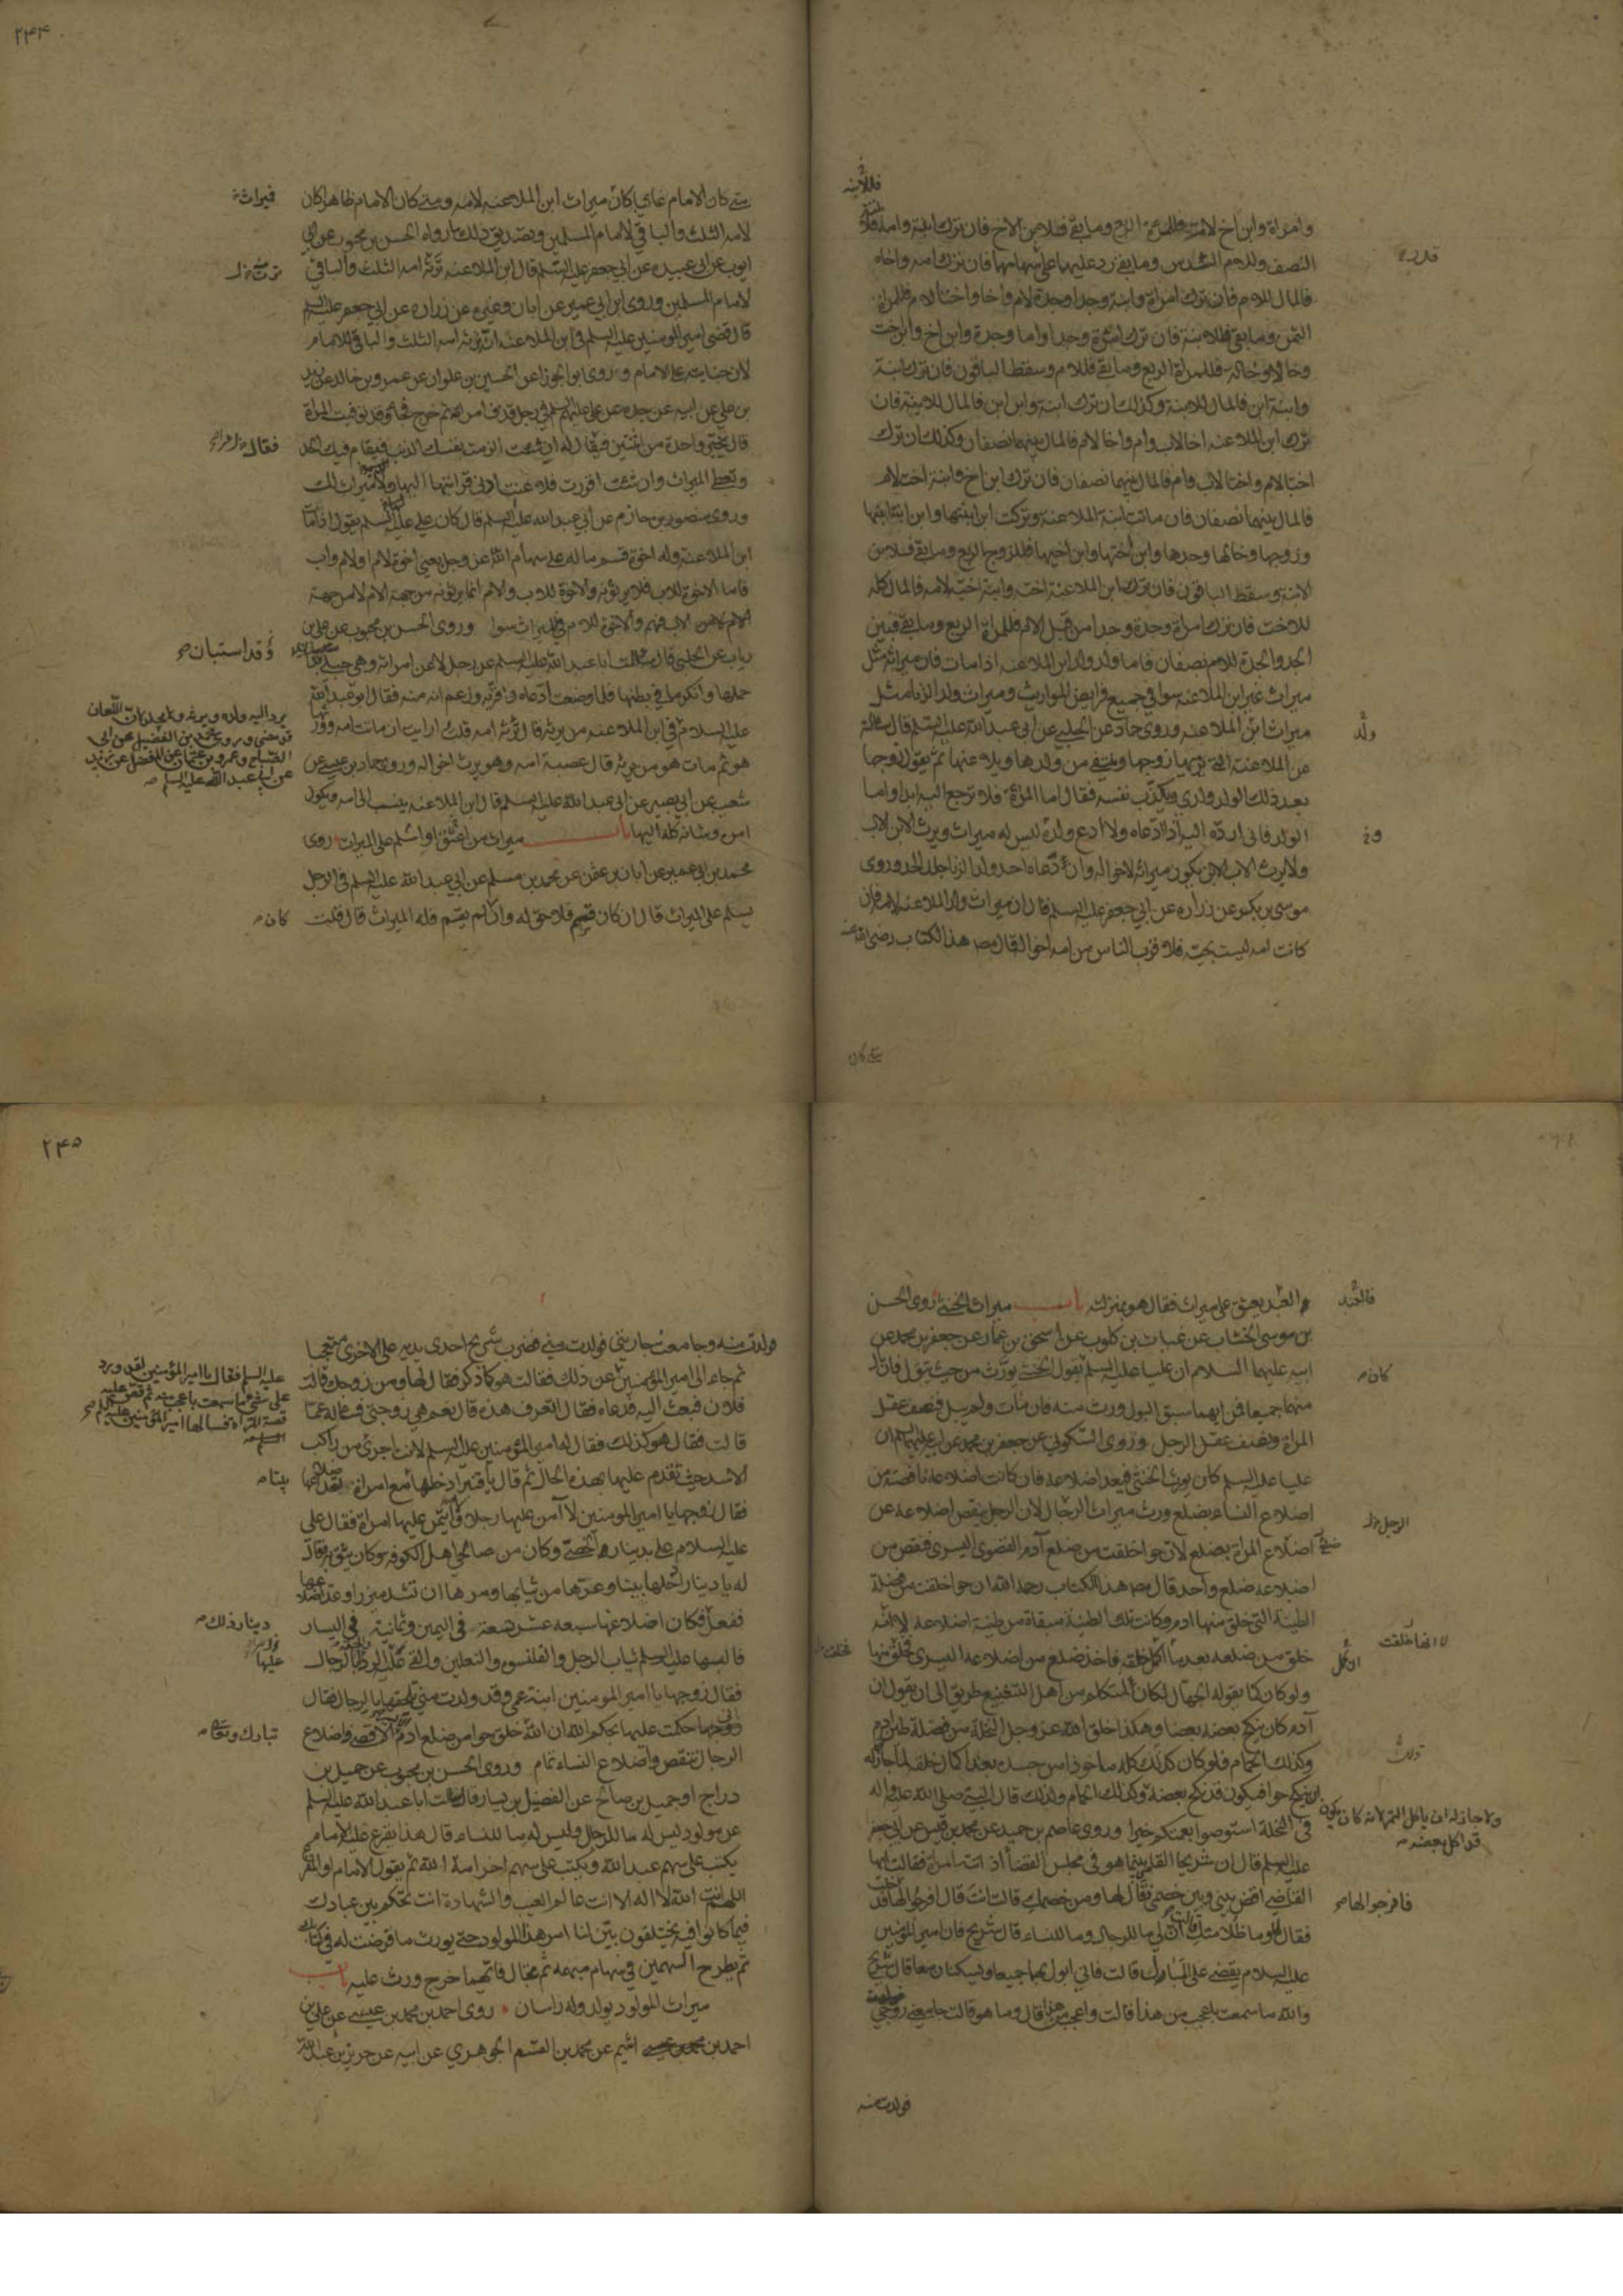 وامراة وابن اخ لامه فللمراة الربع وما بقى فلابن الاخ فان ترك ابنة وامه فللابنة
النصف وللام السدس وما بقى رد عليهما على سهامهما فان ترك امه واخاه
فالمال للام فان ترك امراة وابنة وجدا وجدة لام واخا واختا لام فللمراة
الثمن وما بقى فللابنة فان ترك امراة وجدا واما وجدة وابن اخ وابن اخت
وخالا وخالة فللمراة الربع وما بقى فللام وسقط الباقون فان ترك ابنة
وابنة ابن فالمال للابنة وكذلك ان ترك ابنة وابن ابن فالمال للابنة فان
ترك ابن الملاعنة اخا لاب وام واخا لام فالمال بينهما نصفان وكذلك ان ترك
اختا لام واختا لاب وام فالمال بينهما نصفان فان ترك ابن اخ وابنة اخت لام
فالمال بينهما نصفان فان ماتت ابنة الملاعنة وتركت ابن ابنتها وابن ابنة ابنها
وزوجها وخالها وجدها وابن اختها وابن اخيها فللزوج الربع وما بقى فلابن
الابنة وسقط الباقون فان ترك ابن الملاعنة اخته وابنة اخته لامه فالمال كله
للاخت فان ترك امراة وجدة وجدا من قبل الام فللمراة الربع وما بقى فبين
الجد والجدة للام نصفان فاما ولد ولد ابن الملاعنة اذا مات فان ميراثه مثل
ميراث غير ابن الملاعنة سوا في جميع فرايض المواريث وميراث ولد الزنا مثل
ميراث ابن الملاعنة وروى حماد عن الحلبي عن ابى عبد الله عليه السلم قال سالته
عن الملاعنة التي يرميها زوجها وينتفى من ولدها ويلاعنها ثم يقول زوجها
بعد ذلك الولد ولدي ويكذب نفسه فقال اما المراة فلا ترجع اليه ابدا واما
الولد فانى ارده اليه اذا ادعاه ولا ادع ولده ليس له ميراث ويرث الابن الاب
ولا يرث الاب الابن يكون ميراثه لاخواله وان ادعاه احد ولد الزنا جلد الحد وروى
موسى بن بكر عن زراره عن ابي جعفر عليه السلم قال ان ميراث ولد الملاعنة لامه فان
كانت امه ليست بحية فلاقرب الناس من امه اخواله قال مص هذا الكتاب رضى الله عنه
متى كان
ولد
٢٤٤
متى كان الامام غايبا كان ميراث ابن الملاعنة لامه ومتى كان الامام ظاهرا كان
لامه الثلث والباقي لامام المسلمين وتصديق ذلك ما رواه الحسن بن محبوب عن ابي
ايوب عن ابي عبيده عن ابي جعفر عليه السلم قال ابن الملاعنة ترثه امه الثلث والباقي
لامام المسلمين وروى ابن ابي عمير عن ابان وغيره عن زراره عن ابي جعفر عليه السلم
قال قضى امير المومنين عليه السلم في ابن الملاعنة انه ترثه امه الثلث والباقي للامام
لان جنايته على الامام وروى ابو الجوزا عن الحسين بن علوان عن عمرو بن خالد عن زيد
بن علي عن ابيه عن جده عن علي عليهم السلم في رجل قذف امراته ثم خرج فجاء وقد توفيت المراة
قال يخير واحدة من اثنتين فيقال له ان شئت الزمت نفسك الذنب فيقام فيك الحد
وتعطى الميراث وان شئت اقررت فلاعنت ادنى قرابتها اليها ولا ميراث لك
وروى منصور بن حازم عن ابي عبد الله عليه السلم قال كان علي عليه السلم يقول اذا مات
ابن الملاعنة وله اخوة قسم ماله على سهام الله عز وجل يعني اخوة لام او لام واب
فاما الاخوة للاب فلا يرثونه والاخوة للاب والام انما يرثونه من جهة الام لا من جهة
الاب فهم والاخوة للام في الميراث سوا وروى الحسن بن محبوب عن علي بن
رياب عن الحلبي قال سالت ابا عبد الله عليه السلم عن رجل لاعن امراته وهي حبلى
حملها وانكر ما في بطنها فلما وضعت ادعاه واقر به وزعم انه منه فقال ابو عبد الله
عليه السلام في ابن الملاعنة من يرثه قال ترثه امه قلت ارايت ان ماتت امه وورثها
هو ثم مات هو من يرثه قال عصبة امه وهو يرث اخواله وروى حماد بن عيسى عن
شعيب عن ابي بصير عن ابى عبد الله عليه السلم قال ابن الملاعنة ينسب الى امه ويكون
امره وشانه كله اليها باب ميراث من اعتق او اسلم على الميراث روى
محمد بن ابي عمير عن ابان بن عثمن عن محمد بن مسلم عن ابي عبد الله عليه السلم في الرجل
يسلم على الميراث قال ان كان قسم فلا حق له وان كان لم يقسم فله الميراث قال قلت
فميراث
فقال
وقد استبان
يرد اليه ولده ويرثه ولا يجلد لان اللعان
قد مضى وروى محمد بن الفضيل عن ابي
الصباح وعمرو بن عثمان عن المفضل عن زيد
عن ابي عبد الله عليه السلم
كان
العبد يعتق على ميراث فقال هو بمنزلته باب ميراث الخنثى روى الحسن
بن موسى الخشاب عن غياث بن كلوب عن اسحق بن عمار عن جعفر بن محمد عن
ابيه عليهما السلام ان عليا عليه السلم يقول الخنثى يورث من حيث يبول فان بال
منهما جميعا فمن ايهما سبق البول ورث منه فان مات ولم يبل فنصف عقل
المراة ونصف عقل الرجل وروى السكوني عن جعفر بن محمد عن ابيه عليهما السلم ان
عليا عليه السلم كان يورث الخنثى فيعد اضلاعه فان كانت اضلاعه ناقصة من
اضلاع النساء بضلع ورث ميراث الرجال لان الرجل ينقص اضلاعه عن
اضلاع المراة بضلع لان حوا خلقت من ضلع آدم القصوى اليسرى فنقص من
اضلاعه ضلع واحد قال مص هذا الكتاب رحمه الله ان حوا خلقت من فضلة
الطينة التي خلق منها ادم وكانت تلك الطينة مبقاة من طينة اضلاعه لا انه
خلق من ضلعه بعد ما اكمل خلقه فاخذ ضلع من اضلاعه اليسرى فخلق منها
ولو كان كما يقوله الجهال لكان المتكلم من اهل التشنيع طريق الى ان يقول ان
آدم كان ينكح بعضه بعضا وهكذا خلق الله عز وجل النخلة من فضلة طين ادم
وكذلك الحمام فلو كان كذلك كله ماخوذا من جسده بعد اكمال خلقه لما جاز له
ان ينكح حوا فيكون قد نكح بعضه وكذلك الحمام ولذلك قال النبي صلى الله عليه واله
في النخلة استوصوا بعمتكم خيرا وروى عاصم بن حميد عن محمد بن قيس عن ابي جعفر
عليه السلم قال ان شريحا القاضي بينما هو في مجلس القضا اذ اتته امراة فقالت ايها
القاضي اقض بيني وبين خصمى فقال لها ومن خصمك قالت انت قال افرجوا لها
فقال لها وما ظلامتك قالت ان لي ما للرجال وما للنساء قال شريح فان امير المومنين
عليه السلام يقضي على المبال قالت فاني ابول بهما جميعا ويسكنان معا قال شريح
والله ما سمعت باعجب من هذا قالت واعجب من هذا قال وما هو قالت جامعني زوجي
فولدت منه
كان
الرجل
انها خلقت
ولا جاز له ان ياكل التمر لانه كان يكون
قد اكل بعضه
فافرجوا لها
٢٤٥
فولدت منه وجامعت جاريتي فولدت مني فضرب شريح احدى يديه على الاخرى متعجبا
ثم جاء الى امير المؤمنين عن ذلك فقالت هو كما ذكر فقال لها ومن زوجك قالت
فلان فبعث اليه فدعاه فقال اتعرف هذه قال نعم هي زوجتي فساله عما
قالت فقال هو كذلك فقال له امير المؤمنين عليه السلم لانت اجرى من راكب
الاسد حيث تقدم عليها بهذه الحال ثم قال يا قنبر ادخلها مع امراة تعد اضلاعها
فقال زوجها يا امير المومنين لا آمن عليها رجلا ولا ائتمن عليها امراة فقال علي
عليه السلام علي بدينار الخصي وكان من صالحي اهل الكوفه وكان يثق به فقال
له يا دينار ادخلها بيتا وعرها من ثيابها ومرها ان تشد مئزرا وعد اضلاعها
ففعل فكان اضلاعها سبعه عشر تسعة في اليمين وثمانية في اليسار
فالبسها عليه السلم ثياب الرجل والقلنسوة والنعلين والقى عليه الردا والحقه بالرجال
فقال زوجها يا امير المومنين ابنة عمي وقد ولدت مني تلحقها بالرجال فقال
اني حكمت عليها بحكم الله ان الله خلق حوا من ضلع ادم الاقصى واضلاع
الرجال تنقص واضلاع النساء تمام وروى الحسن بن محبوب عن جميل بن
دراج او جميل بن صالح عن الفضيل بن يسار قال سالت ابا عبد الله عليه السلم
عن مولود ليس له ما للرجل وليس له ما للنساء قال هذا يقرع عليه الامام
يكتب على سهم عبد الله ويكتب على سهم اخر امة الله ثم يقول الامام او المقرع
اللهم انت الله لا اله الا انت عالم الغيب والشهادة انت تحكم بين عبادك
فيما كانوا فيه يختلفون بين لنا امر هذا المولود حتى يورث ما فرضت له في كتابك
ثم يطرح السهمين في سهام مبهمة ثم تجال فايهما خرج ورث عليه باب
ميراث المولود يولد وله راسان روى احمد بن محمد بن عيسى عن علي بن
احمد بن اشيم عن محمد بن القسم الجوهري عن ابيه عن حريز بن عبد الله
عليه السلم فقال يا امير المؤمنين لقد ورد
على شيء ما سمعت باعجب منه ثم قص عليه
قصة المراة فسالها امير المؤمنين عليه
السلم
بيتا
دينار ذلك
تبارك وتعالى